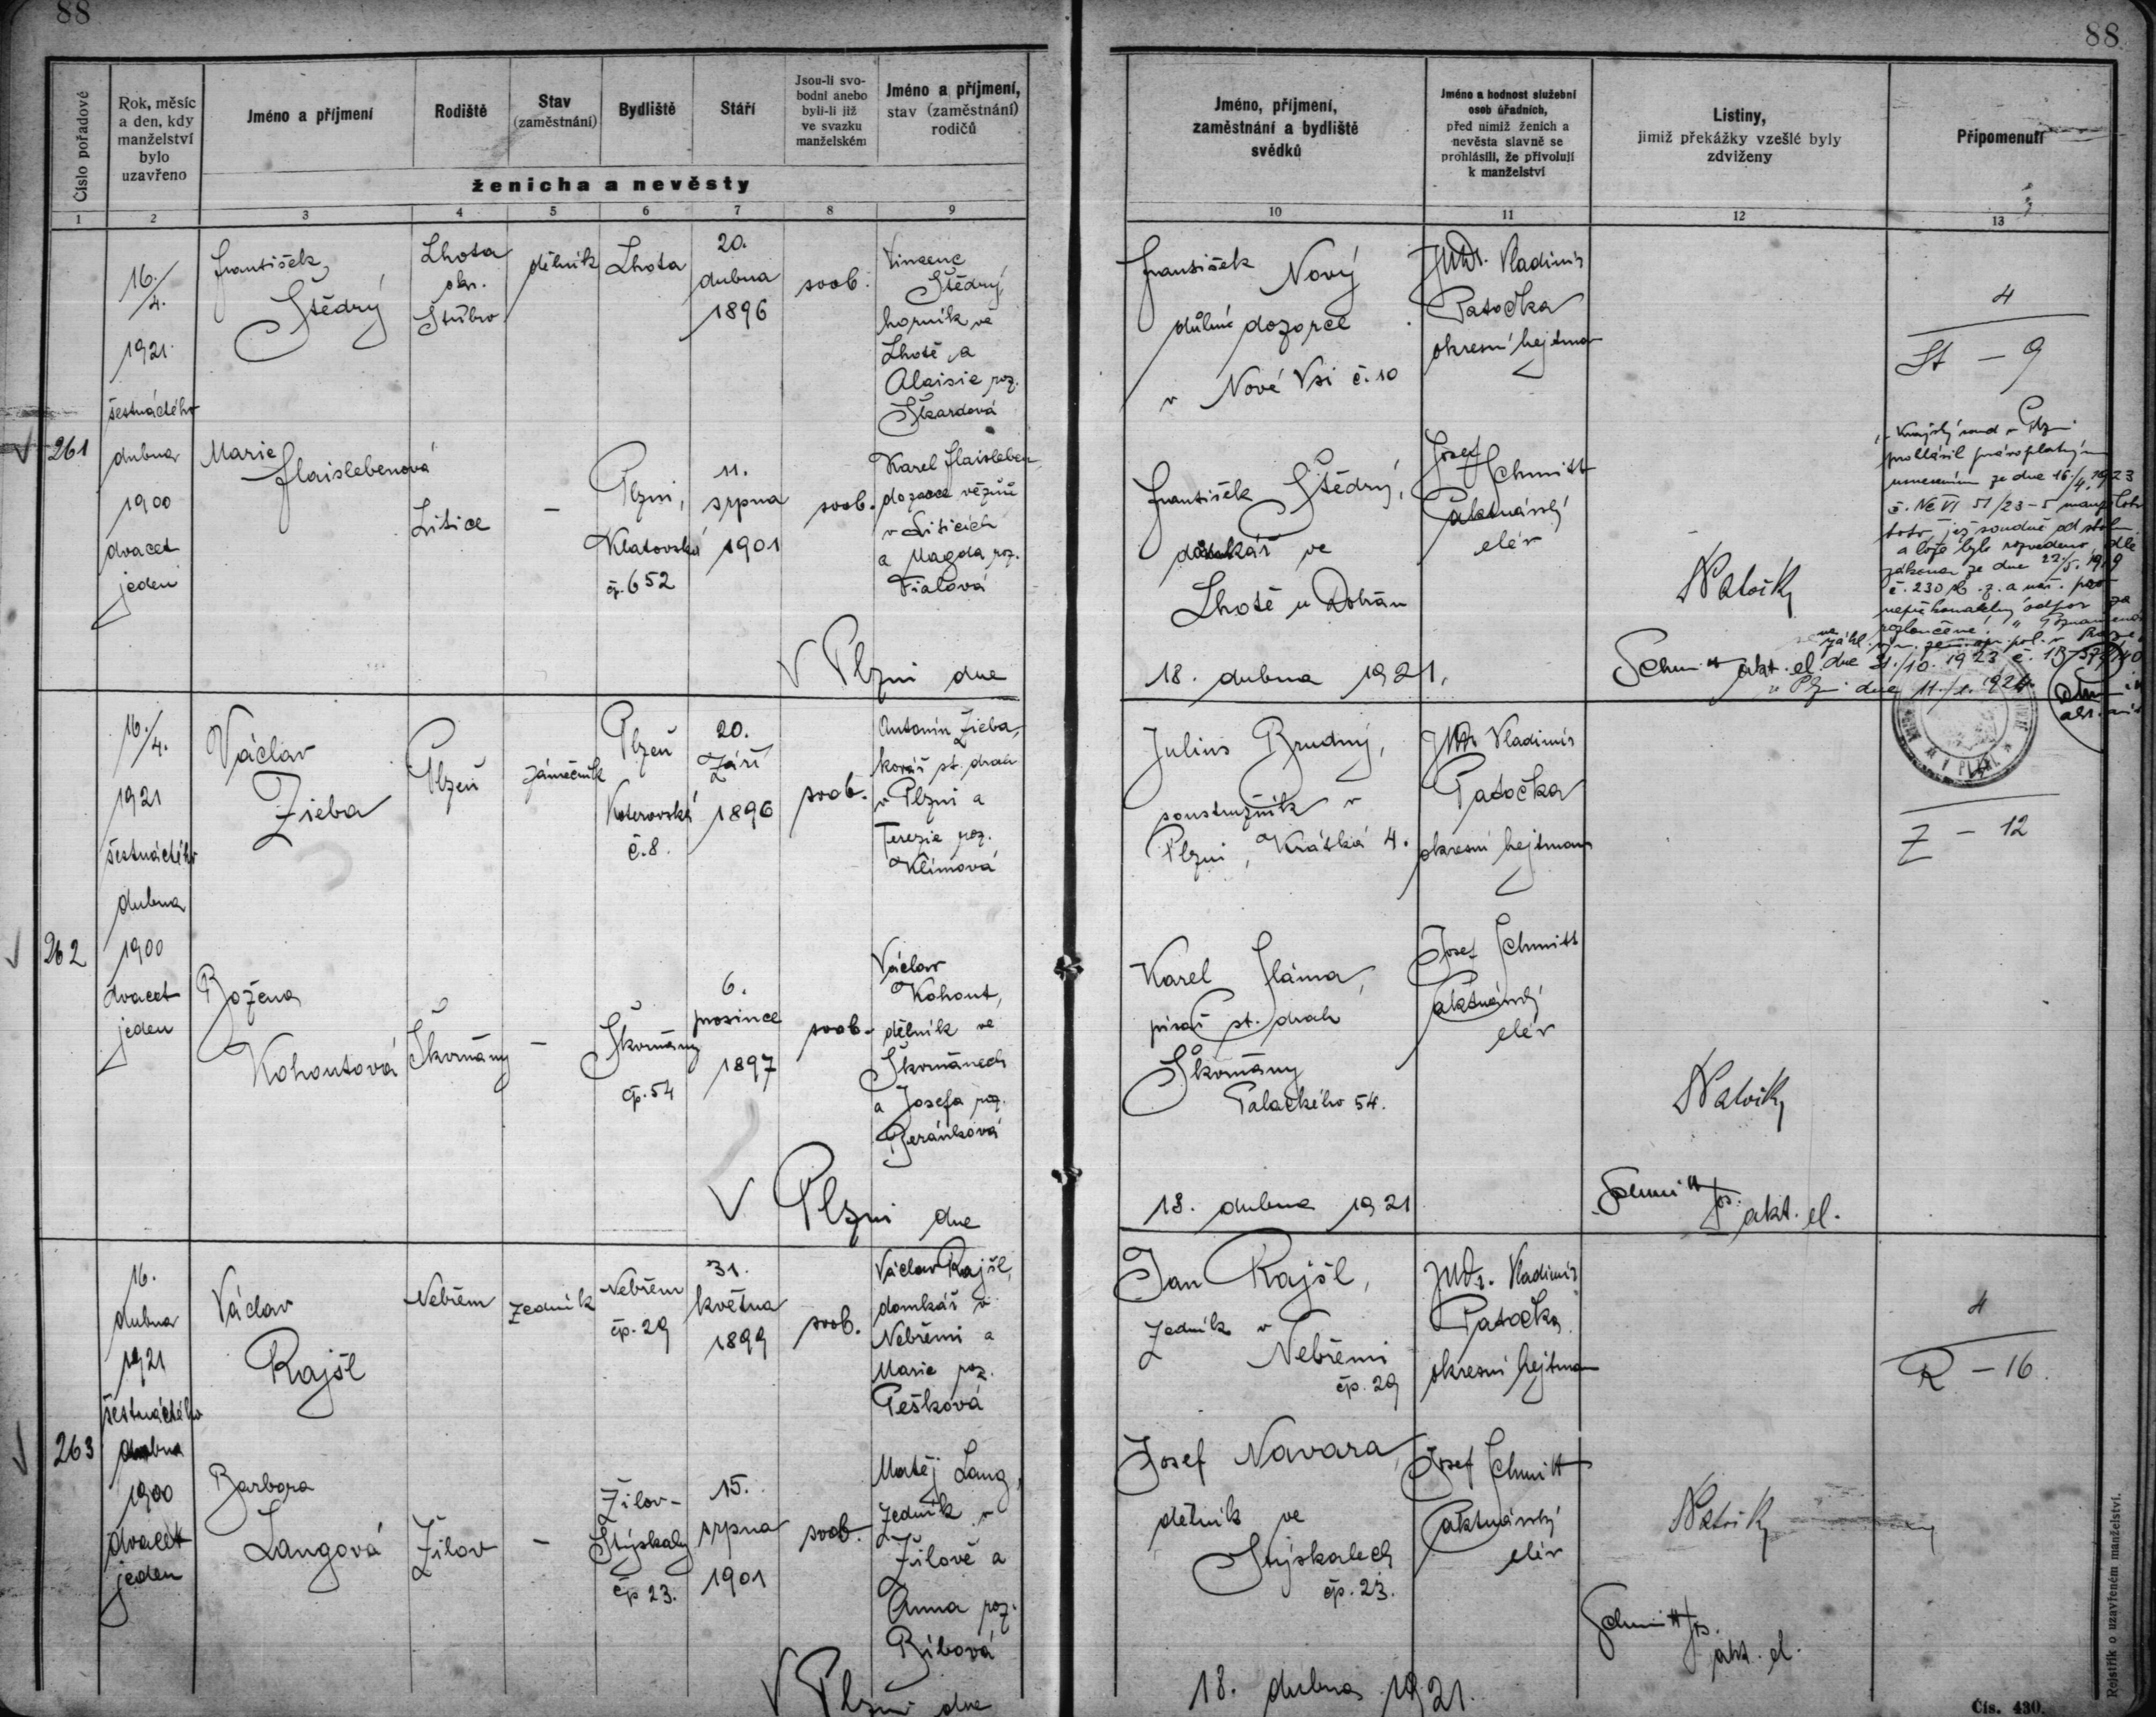 88
88
Číslo pořadové
Rok, měsíc
a den, kdy
manželství
bylo
uzavřeno
Jméno a příjmení
Rodiště
Stav
(zaměstnání)
Bydliště
Stáří
Jsou-li svo-
bodni anebo
byli-li již
ve svazku
manželském
Jméno a příjmení,
stav (zaměstnání)
rodičů
ženicha a nevěsty
Jméno, příjmení,
zaměstnání a bydliště
svědků
Jméno a hodnost služební
osob úřadních,
před nimiž ženich a
nevěsta slavně se
prohlásili, že přivolují
k manželství
Listiny,
jimiž překážky vzešlé byly
zdviženy
Připomenutí
1 2 3 4 5 6 7 8 9 10 11 12 13
261
16./4.
1921
šestnáctého
dubna
1900
dvacet
jeden
František
Štědrý
Lhota
okr.
Stříbro
dělník
Lhota
20.
dubna
1896
svob.
Vincenc
Štědrý,
horník ve
Lhotě a
Aloisie roz.
Škardová
František Nový
důlní dozorce
v Nové Vsi č. 10
JUDr. Vladimír
Patočka
okresní hejtman
4
St - 9
Marie
Flaislebenová
Litice
-
Plzni,
Klatovská
čp. 652
11.
srpna
1901
svob.
Karel Flaisleben,
dozorce vězňů
v Liticích
a Magda roz.
Fialová
František Štědrý,
ve
Lhotě u Dobřan
Josef Schmitt
aktuárský
elév
Krajský soud v Plzni
prohlásil právoplatným
usnesením ze dne 16/4. 1923
č. Nc VI 51/23-5 manželství
toto, jež soudně od stolu
a lože bylo rozvedeno, dle
zákona ze dne 22/5. 1919
č. 230 sb. z. a nař. pro
nepřekonatelný odpor za
rozloučené.
dne 31./10. 1923 č.
v Plzni dne 11./1. 1924.
V Plzni dne 18. dubna 1921.
Schmitt akt. el.
262
16./4.
1921
šestnáctého
dubna
1900
dvacet
jeden
Václav
Zieba
Plzeň
zámečník
Plzeň
Koterovská
č. 8.
20.
září
1896
svob.
Antonín Zieba,
kovář st. drah
v Plzni a
Terezie roz.
Klímová
Julius Brudný,
soustružník v
Plzni, Krátká 4.
JUDr Vladimír
Patočka
okresní hejtman
Z - 12
Božena
Kohoutová
Škvrňany
-
Škvrňany
čp. 54
6.
prosince
1897
svob.
Václav
Kohout,
dělník ve
Škvrňanech
a Josefa roz.
Beránková
Karel Sláma,
písař st. drah
Škvrňany
Palackého 54.
Josef Schmitt
aktuárský
elév
V Plzni dne 18. dubna 1921
Schmitt Jos.
akt. el.
263
16.
dubna
1921
šestnáctého
dubna
1900
dvacet
jeden
Václav
Rajšl
Nebřem
zedník
Nebřem
čp. 29
31.
května
1899
svob.
Václav Rajšl,
domkář v
Nebřemi a
Marie roz.
Pešková
Jan Rajšl,
zedník v
Nebřemi
čp. 29
JUDr. Vladimír
Patočka
okresní hejtman
4
R - 16.
Barbora
Langová
Žilov
-
Žilov-
Stýskaly
čp 23.
15.
srpna
1901
svob.
Matěj Lang,
zedník v
Žilově a
Anna roz.
Bíbová
Josef Navara,
dělník ve
Stýskalech
čp. 23.
Josef Schmitt
aktuárský
elév
Schmitt Jos.
akt. el.
V Plzni dne 18. dubna 1921.
Rejstřík o uzavřeném manželství.
Čís. 430.